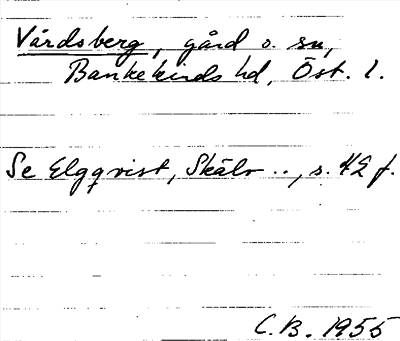 Vårdsberg, gård o. sn,
Bankekinds hd, Öst. l.
Se Elgqvist, Skälv .., s. 42 f.
C.B. 1955